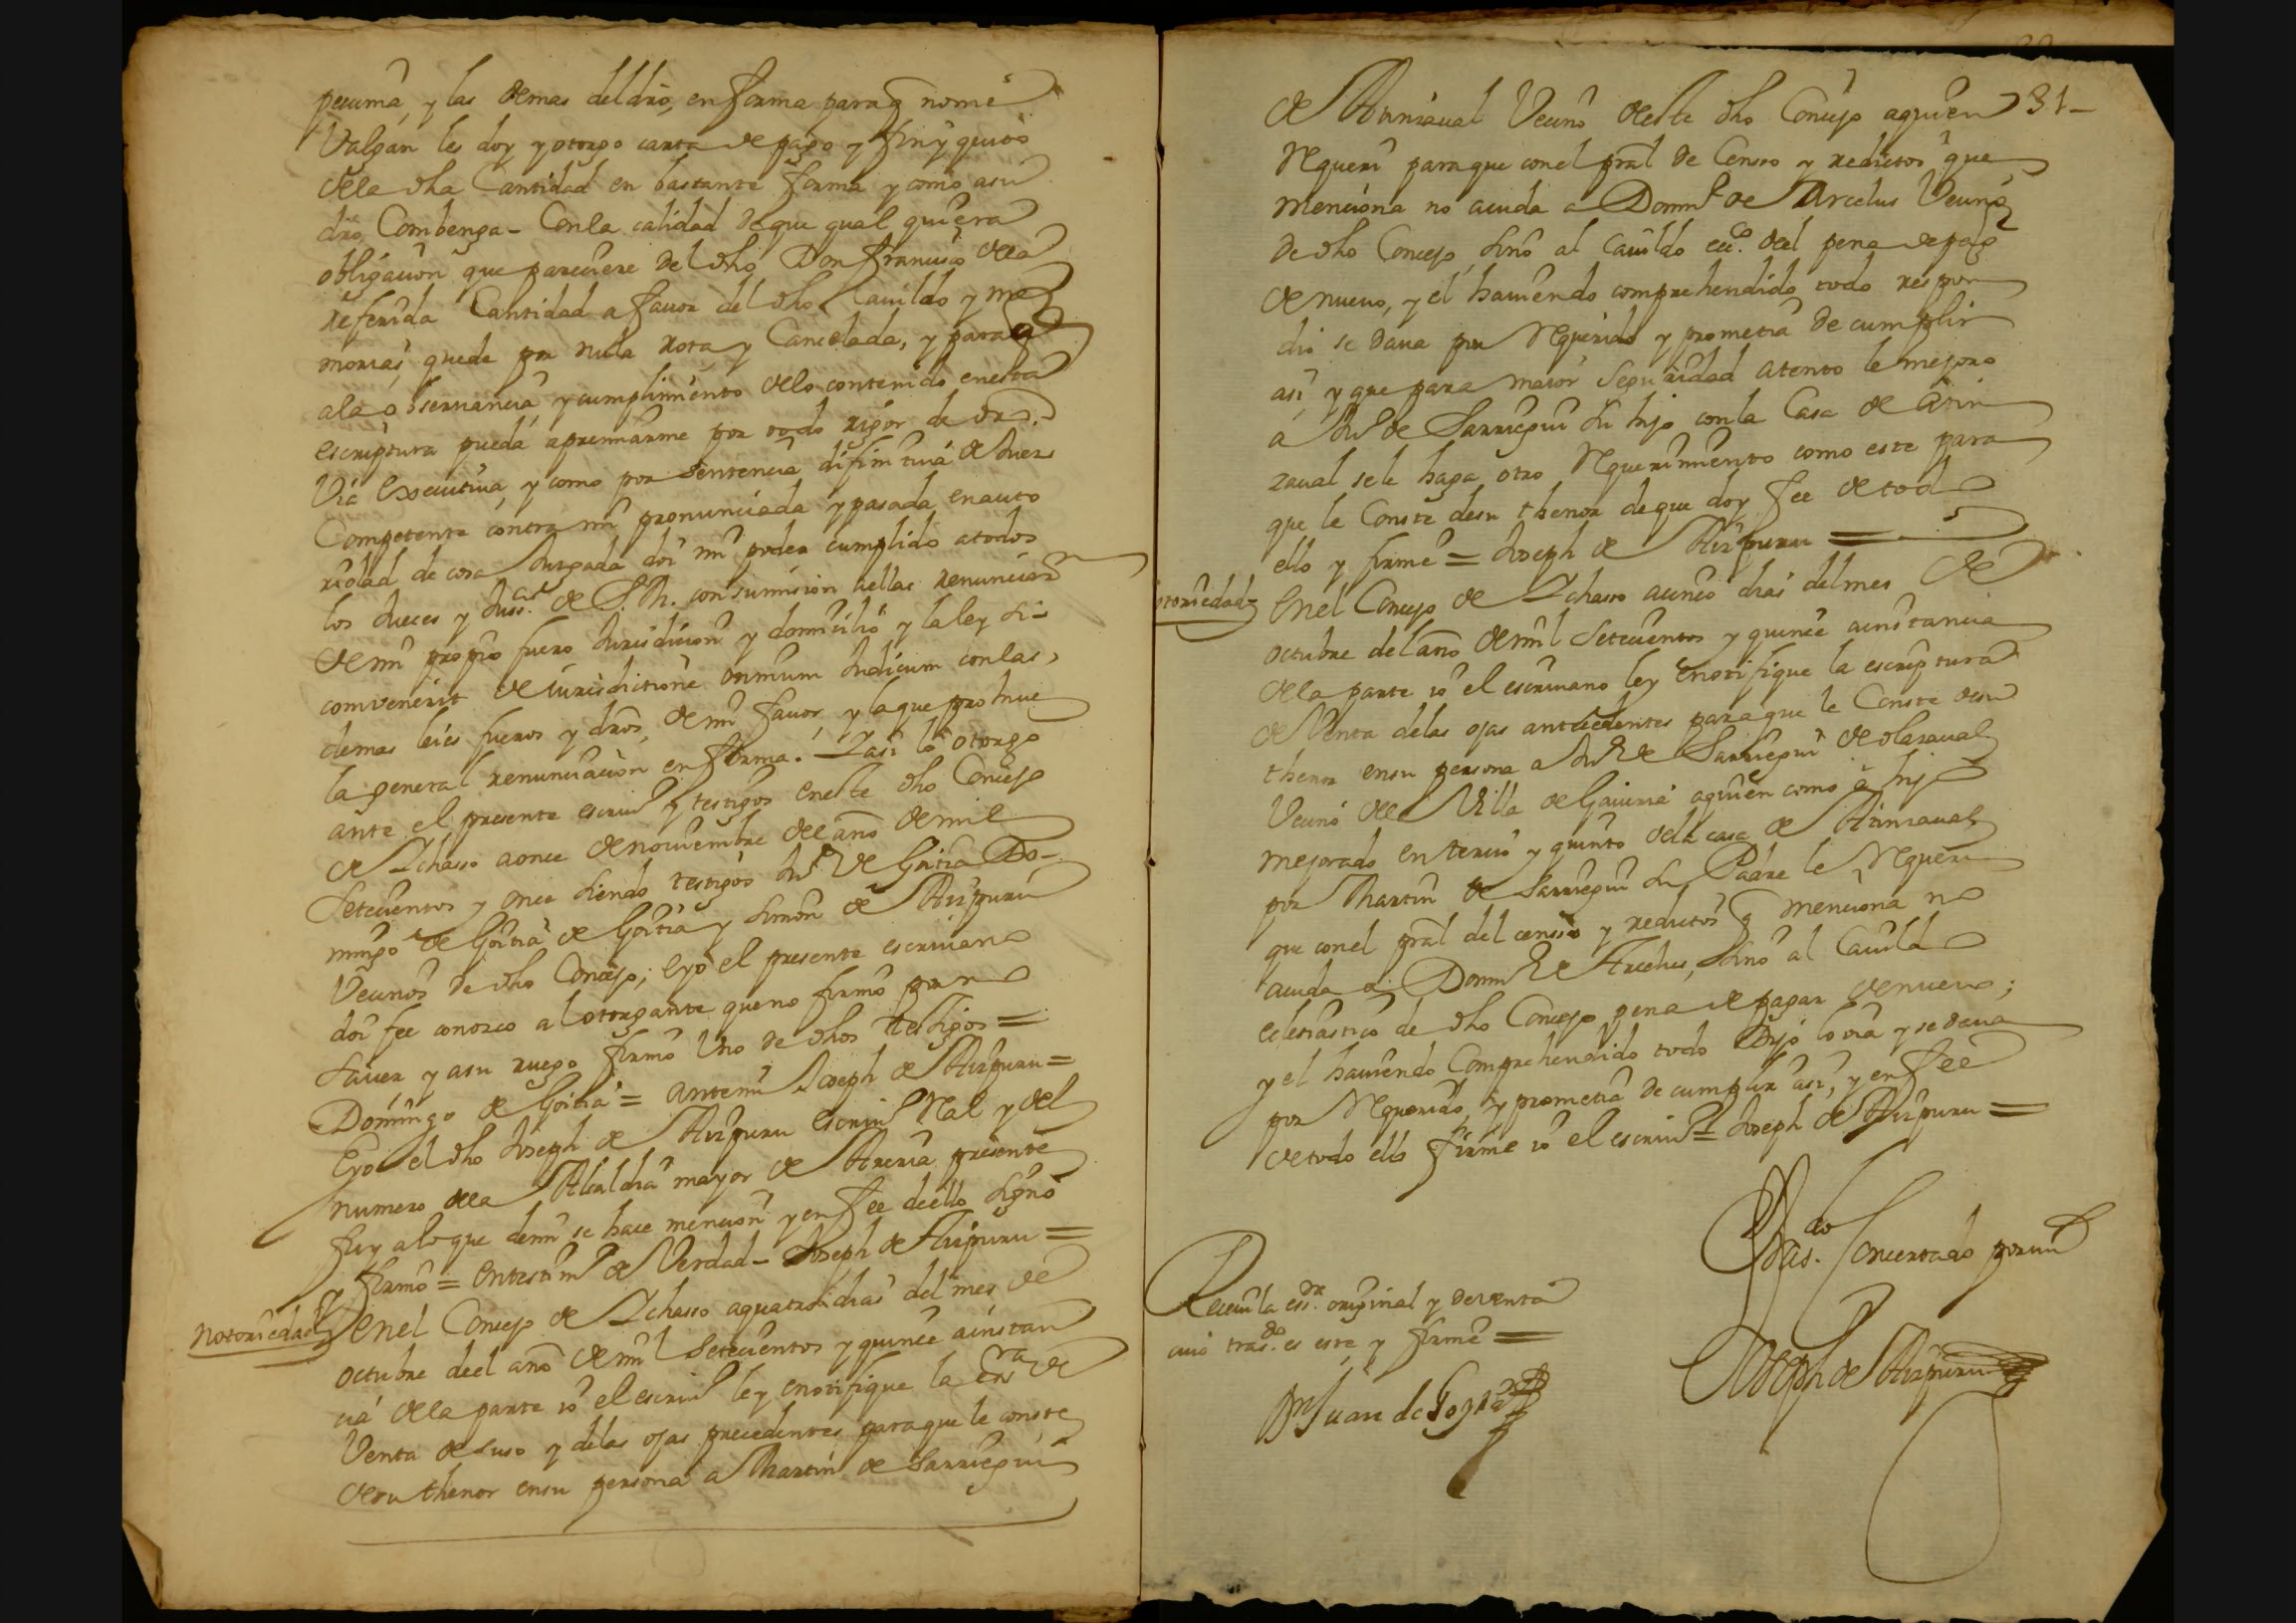 pecunia, y las demas del dro, en forma para q nome
Valgan les doy y otorgo carta de pago y finyquito
dela dha Cantidad en bastante forma y como asu
dro Combenga - Con la calidad de que qual quiera
obligacion que pareciere del dho Don Francisco dela
referida Cantidad a favor del dho Cavildo y me
morias quede por nula rota y Cancelada, y para q
ala observancia y cumplimiento delo contenido enesta
escriptura pueda apremiarme por todo rigor de dro
Via executiva, y como por sentencia difinitiva de Juez
Competente contra mi pronunciada y pasada en auto
ridad de cosa Juzgada doi mi poder cumplido a todos
los Jueces y Juss.as de S.M. con sumision aellas renuncian
de mi propio fuero Jurisdicion y domicilio y la ley si
convenerit de iurisdictione omnium Judicum con las
demas leies fueros y dros de mi favor y la que prohive
la general renunciacion en forma. Y asi lo otorgo
ante el presente escriu.o y testigos eneste dho Concejo
de Ychasso a once de noviembre del año de mil
Setecientos y once siendo testigos Ju.o de Goitia Do-
mingo de Goitia de Goitia y Simon de Aizpuru
Vecinos de dho Concejo; e yo el presente escrivano
doi fee conozco al otorgante que no firmo por no
saver y asu ruego firmo Uno de dhos testigos =
Domingo de Goitia = Antemi Joseph de Aizpuru =
E yo el dho Joseph de Aizpuru escriu.o Real y del
numero dela Alcaldia mayor de Areria presente
fuy alo que demi se hace mencion y en fee deello signo
y firmo = En testim.o de Verdad - Joseph de Aizpuru =
Notoriedad En el Concejo de Ychasso a quatro dias del mes de
octubre deel año de mil Setecientos y quince a instan
cia dela parte io el escriu.o ley e notifique la esra de
Venta de suso y delas ojas precedentes para que le conste
de su thenor en su persona a Martin de Sarriegui
31-
de Arinzaval Vecino deeste dho Concejo aquien
Requeri para que con el pral de Censo y reditos que
menciona no acuda a Dom.o de Arcelus Vecino
de dho Concejo, sino al Cavildo ecc.o del pena de pago
de nuevo, y el haviendo comprehendido todo respon
dio se dava por Requerido y prometia de cumplir
asi y que para maior seguridad atento le mejoro
a Ju.o de Sarriegui su hijo con la Casa de Arin
zaval se le haga otro Requerimiento como este para
que le Conste desu thenor de que doy fee de todo
ello y firme = Joseph de Aizpuru =
toriedad En el Concejo de Ychasso a cinco dias del mes de
octubre del año de mil Setecientos y quince a instancia
dela parte io el escrivano ley e notifique la escriptura
de Venta delas ojas antecedentes para que le Conste desu
thenor en su persona a Ju.o de Sarriegui de olazaval
Vecino dela Villa de Gaviria aquien como a hijo
mejorado en tercio y quinto dela casa de Arinzaval
por Martin de Sarriegui su Padre le Requeri
que con el pral del censo y reditos q menciona no
acuda a Dom.o de Arcelus, sino al Cavildo
eclesiastico de dho Concejo pena de pagar de nuevo;
y el haviendo Comprehendido todo Dijo lo oia y se dava
por Requerido, y prometia de cumplir asi, y en fee
de todo ello firme io el escriu.o = Joseph de Aizpuru =
Tras.do Concertado por mi
Joseph de Aizpuru
Recevi la ess.ra original y de venta
cuio tras.do es este y firme =
Juan de Goya